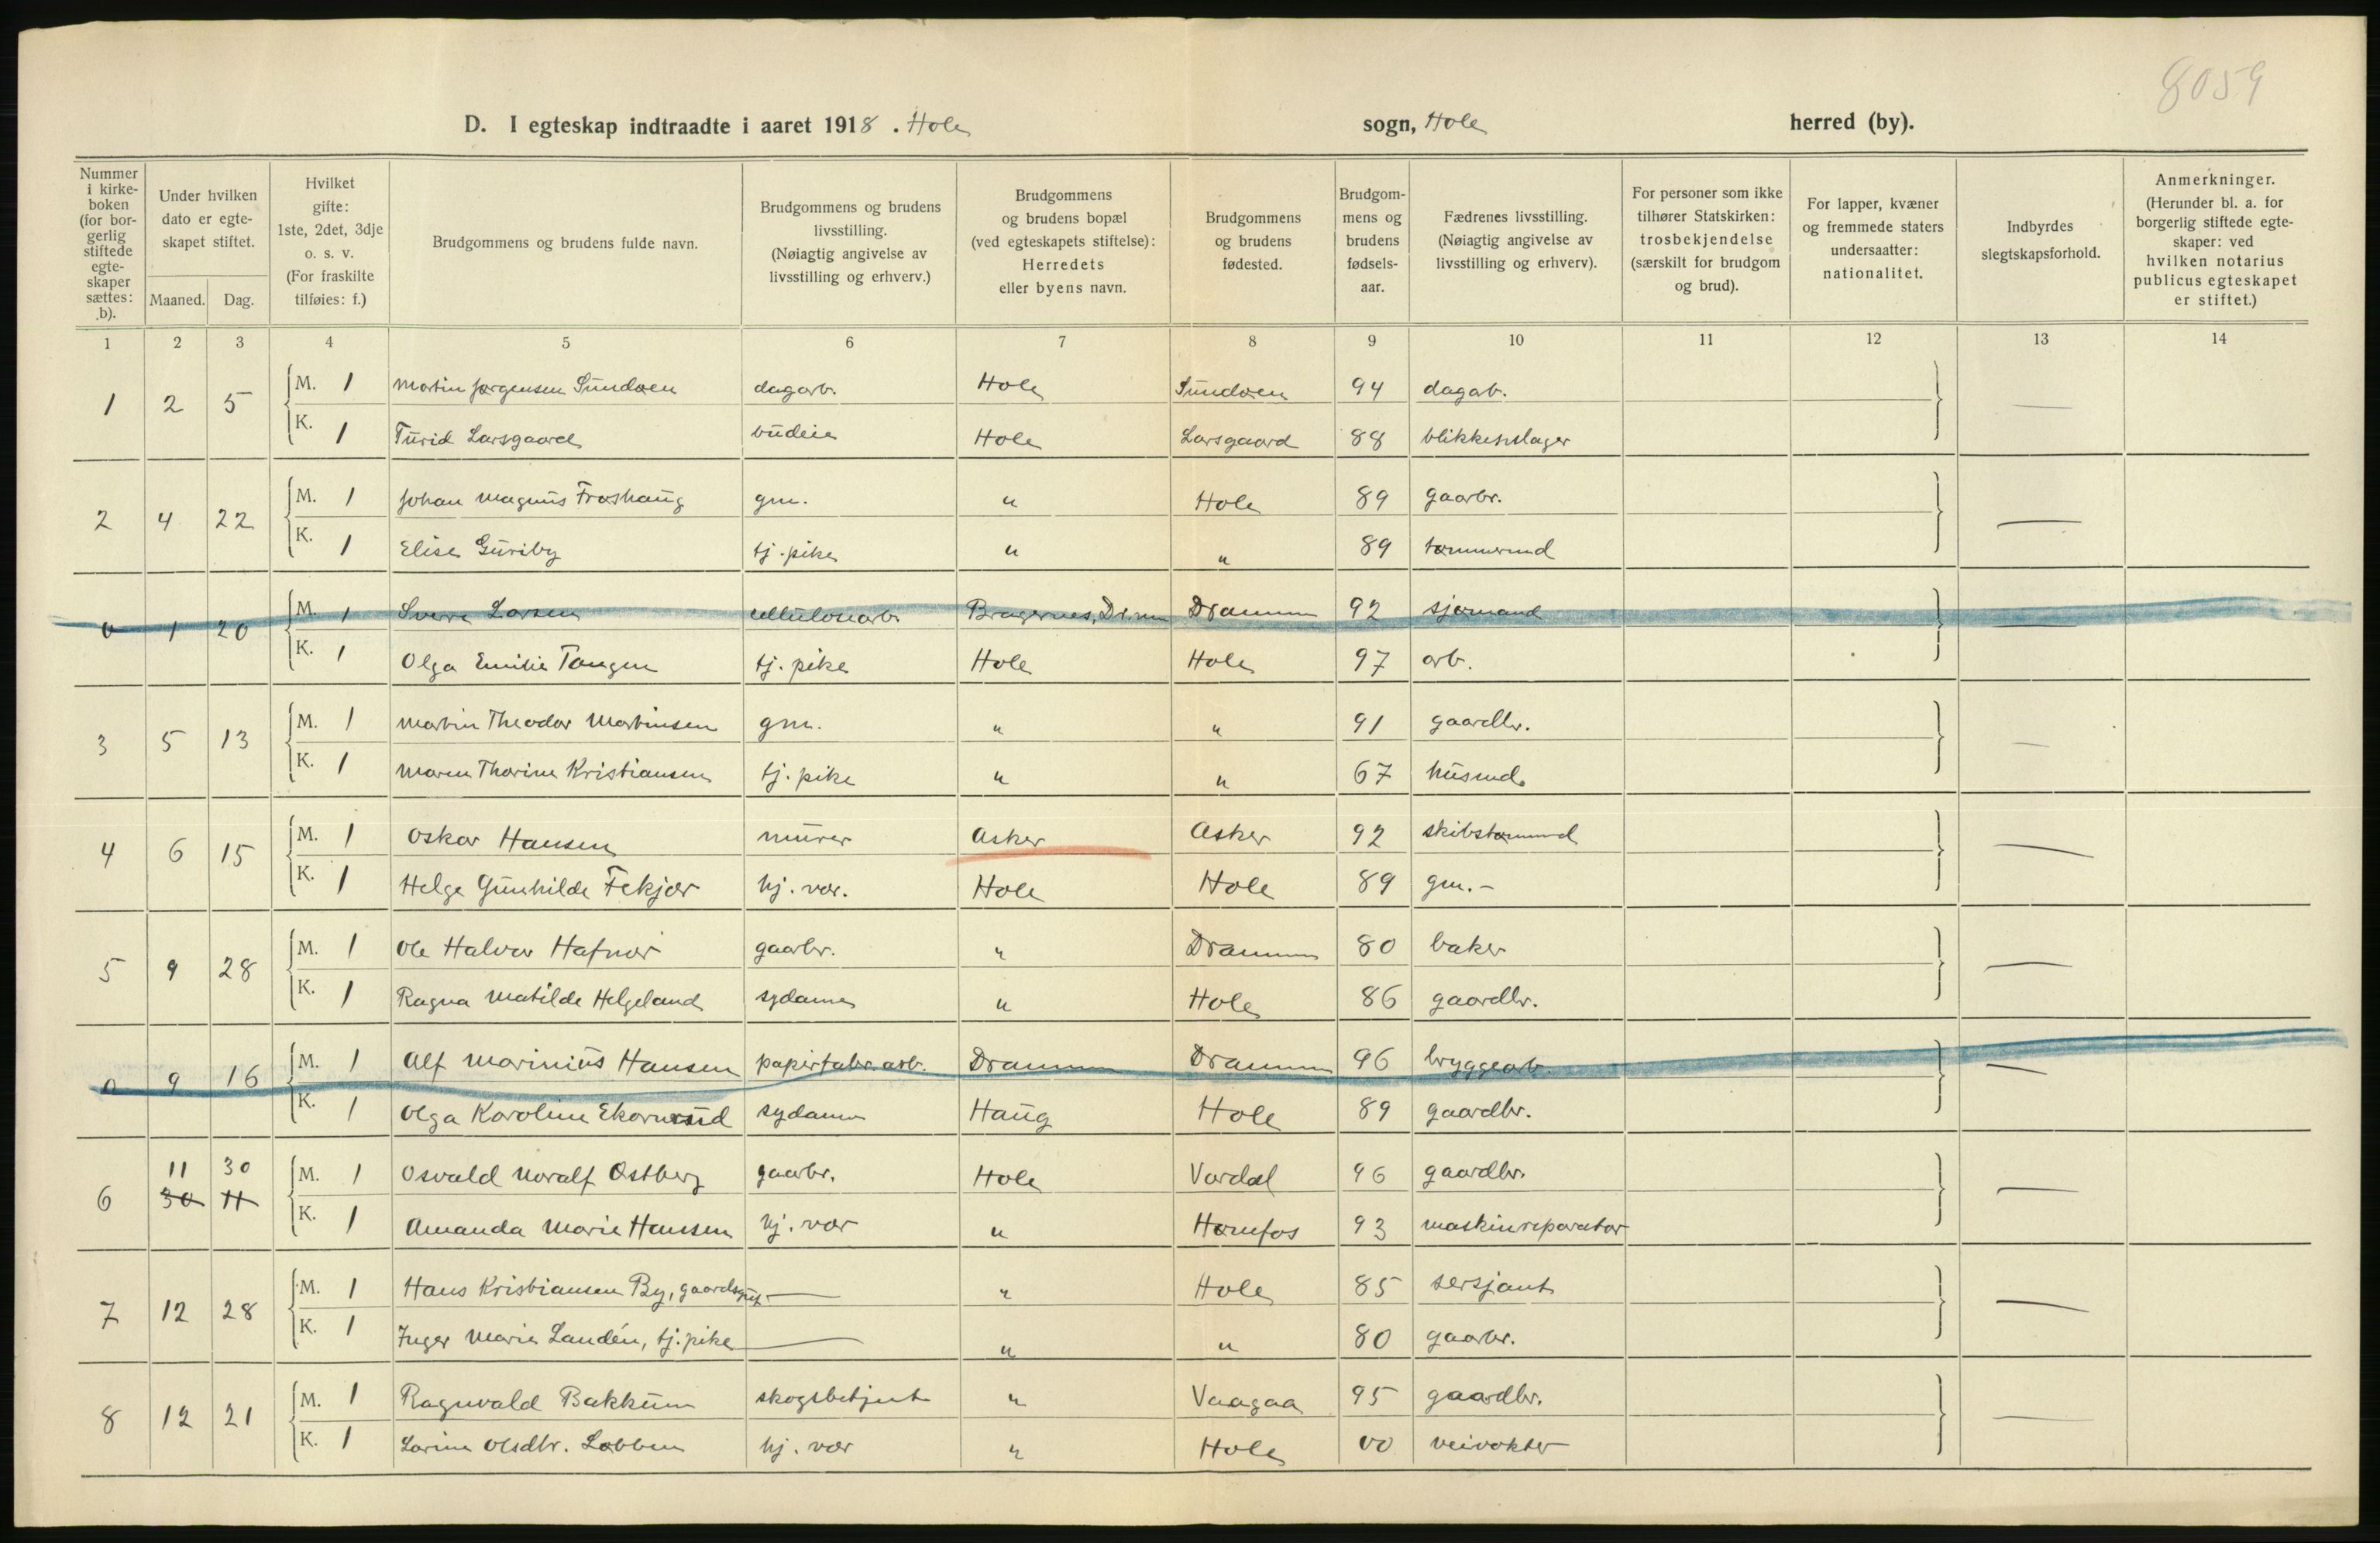 8059
D. I egteskap indtraadte i aaret 1918. Hole sogn, Hole herred (by).
Nummer i kirkeboken (for borgerlig stiftede egteskaper sættes: b).
Under hvilken dato er egteskapet stiftet.
Maaned. Dag.
Hvilket gifte: 1ste, 2det, 3dje o. s. v. (For fraskilte tilføies: f.)
Brudgommens og brudens fulde navn.
Brudgommens og brudens livsstilling. (Nøiagtig angivelse av livsstilling og erhverv.)
Brudgommens og brudens bopæl (ved egteskapets stiftelse): Herredets eller byens navn.
Brudgommens og brudens fødested.
Brudgommens og brudens fødselsaar.
Fædrenes livsstilling. (Nøiagtig angivelse av livsstilling og erhverv).
For personer som ikke tilhører Statskirken: trosbekjendelse (særskilt for brudgom og brud).
For lapper, kvæner og fremmede staters undersaatter: nationalitet.
Indbyrdes slegtskapsforhold.
Anmerkninger. (Herunder bl. a. for borgerlig stiftede egteskaper: ved hvilken notarius publicus egteskapet er stiftet.)
1 2 3 4 5 6 7 8 9 10 11 12 13 14
1 2 5 M. 1 Martin Jørgensen Sundøen dagarb. Hole Sundøen 94 dagab. —
K. 1 Turid Larsgaard budeie Hole Larsgaard 88 blikkenslager
2 4 22 M. 1 Johan Magnus Frøshaug gm. " Hole 89 gaarbr. —
K. 1 Elise Guriby tj. pike " " 89 tømmermd
0 1 20 M. 1 Sverre Larsen cellulosearb. Bragernes, Drmn Drammn 92 sjømand —
K. 1 Olga Emilie Tangen tj. pike Hole Hole 97 arb.
3 5 13 M. 1 Martin Theodor Martinsen gm. " " 91 gaardbr. —
K. 1 Maren Thorine Kristiansen tj. pike " " 67 husmd.
4 6 15 M. 1 Oskar Hansen murer Asker Asker 92 skibstømmmd —
K. 1 Helga Gunhilde Fekjær hj. vær. Hole Hole 89 gm. -
5 9 28 M. 1 Ole Halvor Hafnor gaarbr. " Drammn 80 baker —
K. 1 Ragna Matilde Helgeland sydame " Hole 86 gaardbr.
0 9 16 M. 1 Alf Marinius Hansen papirfabr. arb. Drammn Drammn 96 bryggearb. —
K. 1 Olga Karoline Ekornrud sydame Haug Hole 89 gaardbr.
11 30
6 30 11 M. 1 Osvald Noralf Østberg gaarbr. Hole Vardal 96 gaardbr. —
K. 1 Amanda Marie Hansen hj. vær " Hønefos 93 maskinreparatør
7 12 28 M. 1 Hans Kristiansen By, gaardsgut — " Hole 85 sersjant —
K. 1 Inger Marie Landén, tj. pike — " " 80 gaarbr.
8 12 21 M. 1 Ragnvald Bakkum skogsbetjent " Vaagaa 95 gaardbr. —
K. 1 Larine Olsdtr. Løbben hj. vær " Hole 00 veivokter